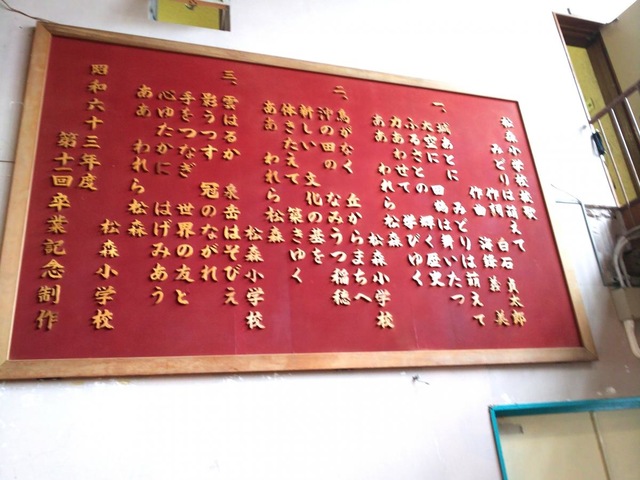 松森小学校校歌
みどりは萌えて
作詞 白石 真太郎
作曲 海鋒 義美
一、
城あとに みどりは萌えて
大空に 田鶴は舞いたつ
ふるさとの 輝く歴史
力あわせて 学びゆく
ああ われら松森
松森小学校
二、
鳥がなく 丘からまちへ
沖の田の なみうつ稲穂
新しい 文化の基を
体きたえて 築きゆく
ああ われら松森
松森小学校
三、
雲はるか 泉岳はそびえ
影うつす 冠のながれ
手をつなぎ 世界の友と
心ゆたかに はげみあう
ああ われら松森
松森小学校
昭和六十三年度
第十一回卒業記念制作